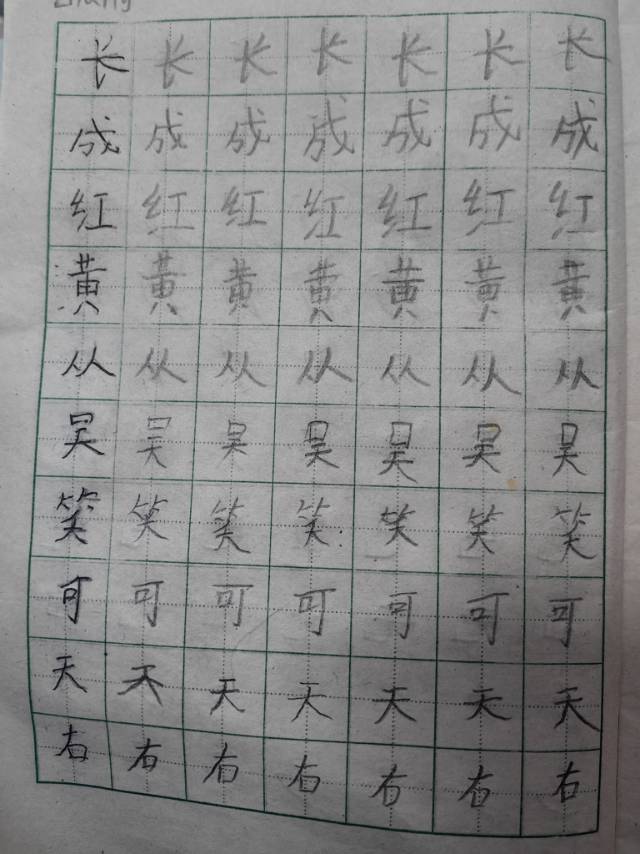 zhang
长长长长长长长
成成成成成成成
红红红红红红红
黄黄黄黄黄黄黄
从从从从从从从
吴吴吴吴吴吴吴
笑笑笑笑笑笑笑
可可可可可可可
天天天天天天天
右右右右右右右